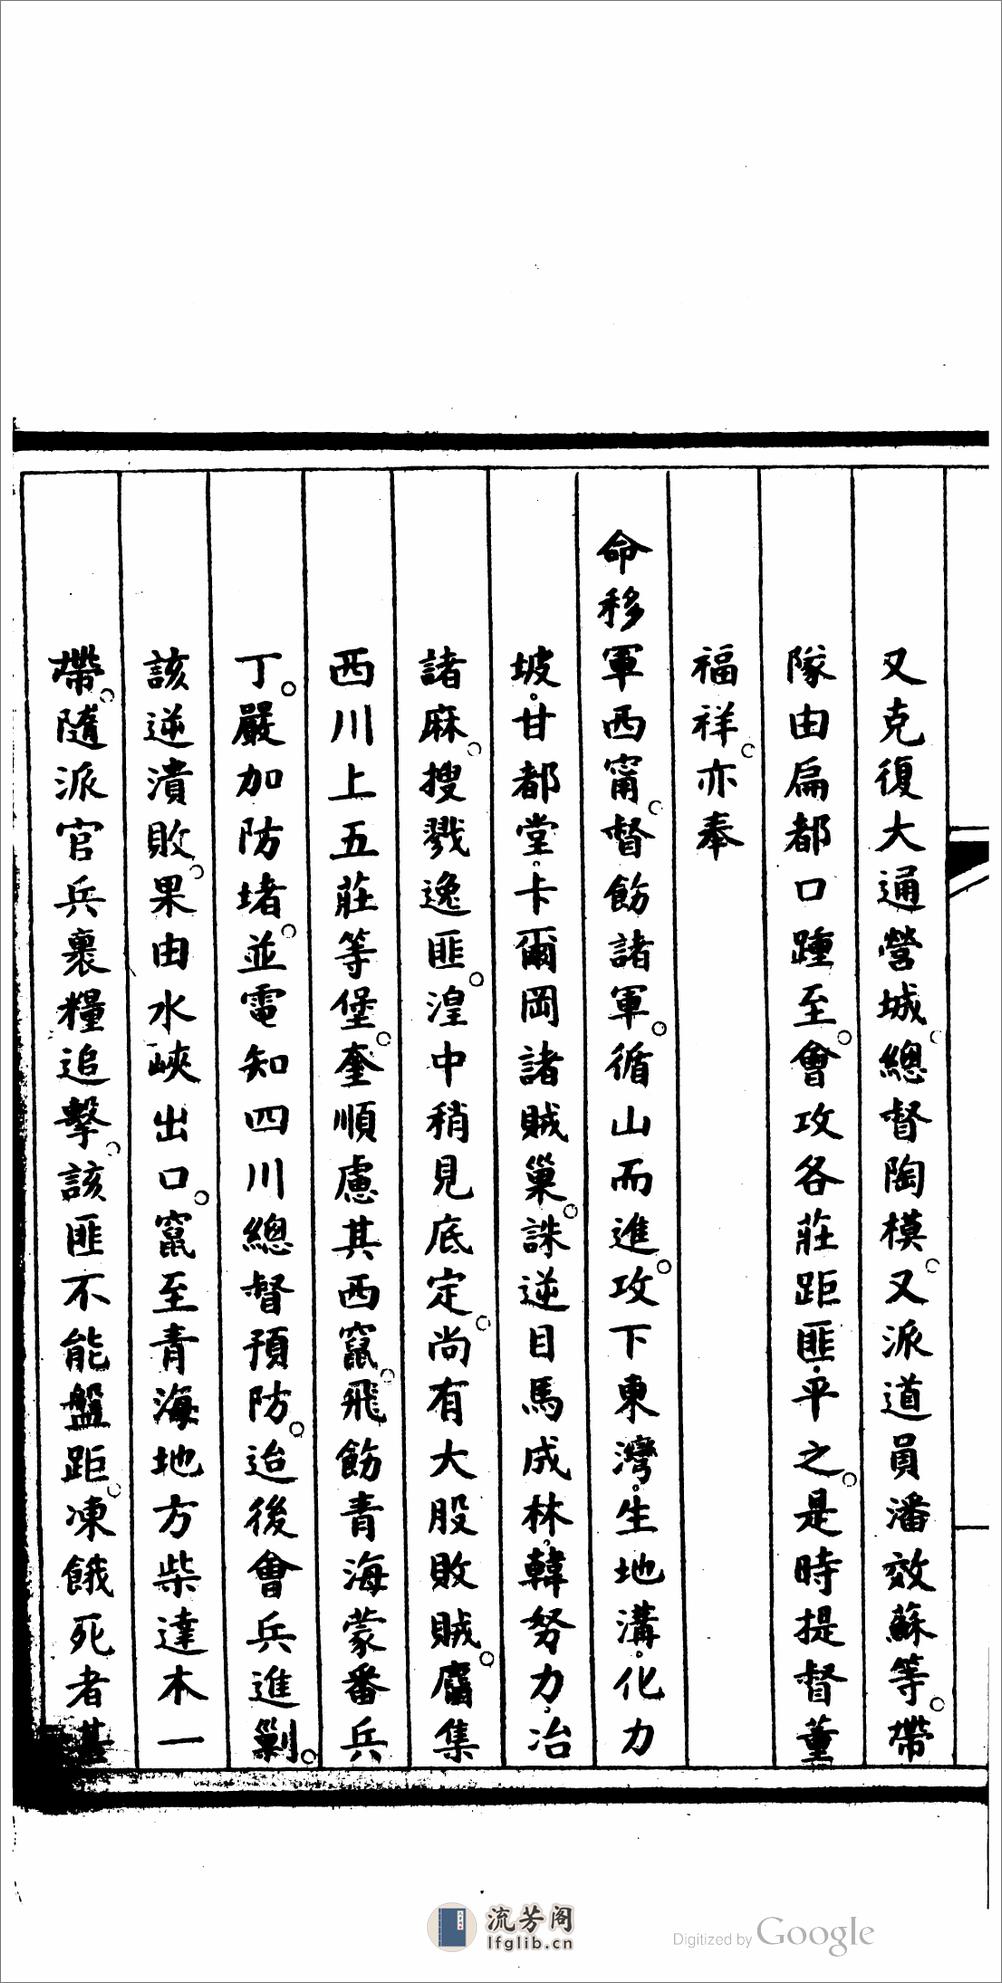 又克復大通營城。總督陶模。又派道員潘效蘇等。帶
隊由扁都口踵至。會攻各莊距匪平之。是時提督董
福祥。亦奉
命移軍西甯。督飭諸軍。循山而進。攻下東灣。生地溝。化力
坡。甘都堂。卡爾岡諸賊巢。誅逆目馬成林、韓努力、冶
諸麻。搜戮逸匪。湟中稍見底定。尚有大股敗賊。麕集
西川上五莊等堡。奎順慮其西竄。飛飭青海蒙番兵
丁。嚴加防堵。並電知四川總督預防。迨後會兵進剿。
該逆潰敗。果由水峽出口。竄至青海地方柴達木一
帶。隨派官兵裹糧追擊。該匪不能盤距。凍餓死者甚
流芳阁
lfglib.cn
Digitized by Google